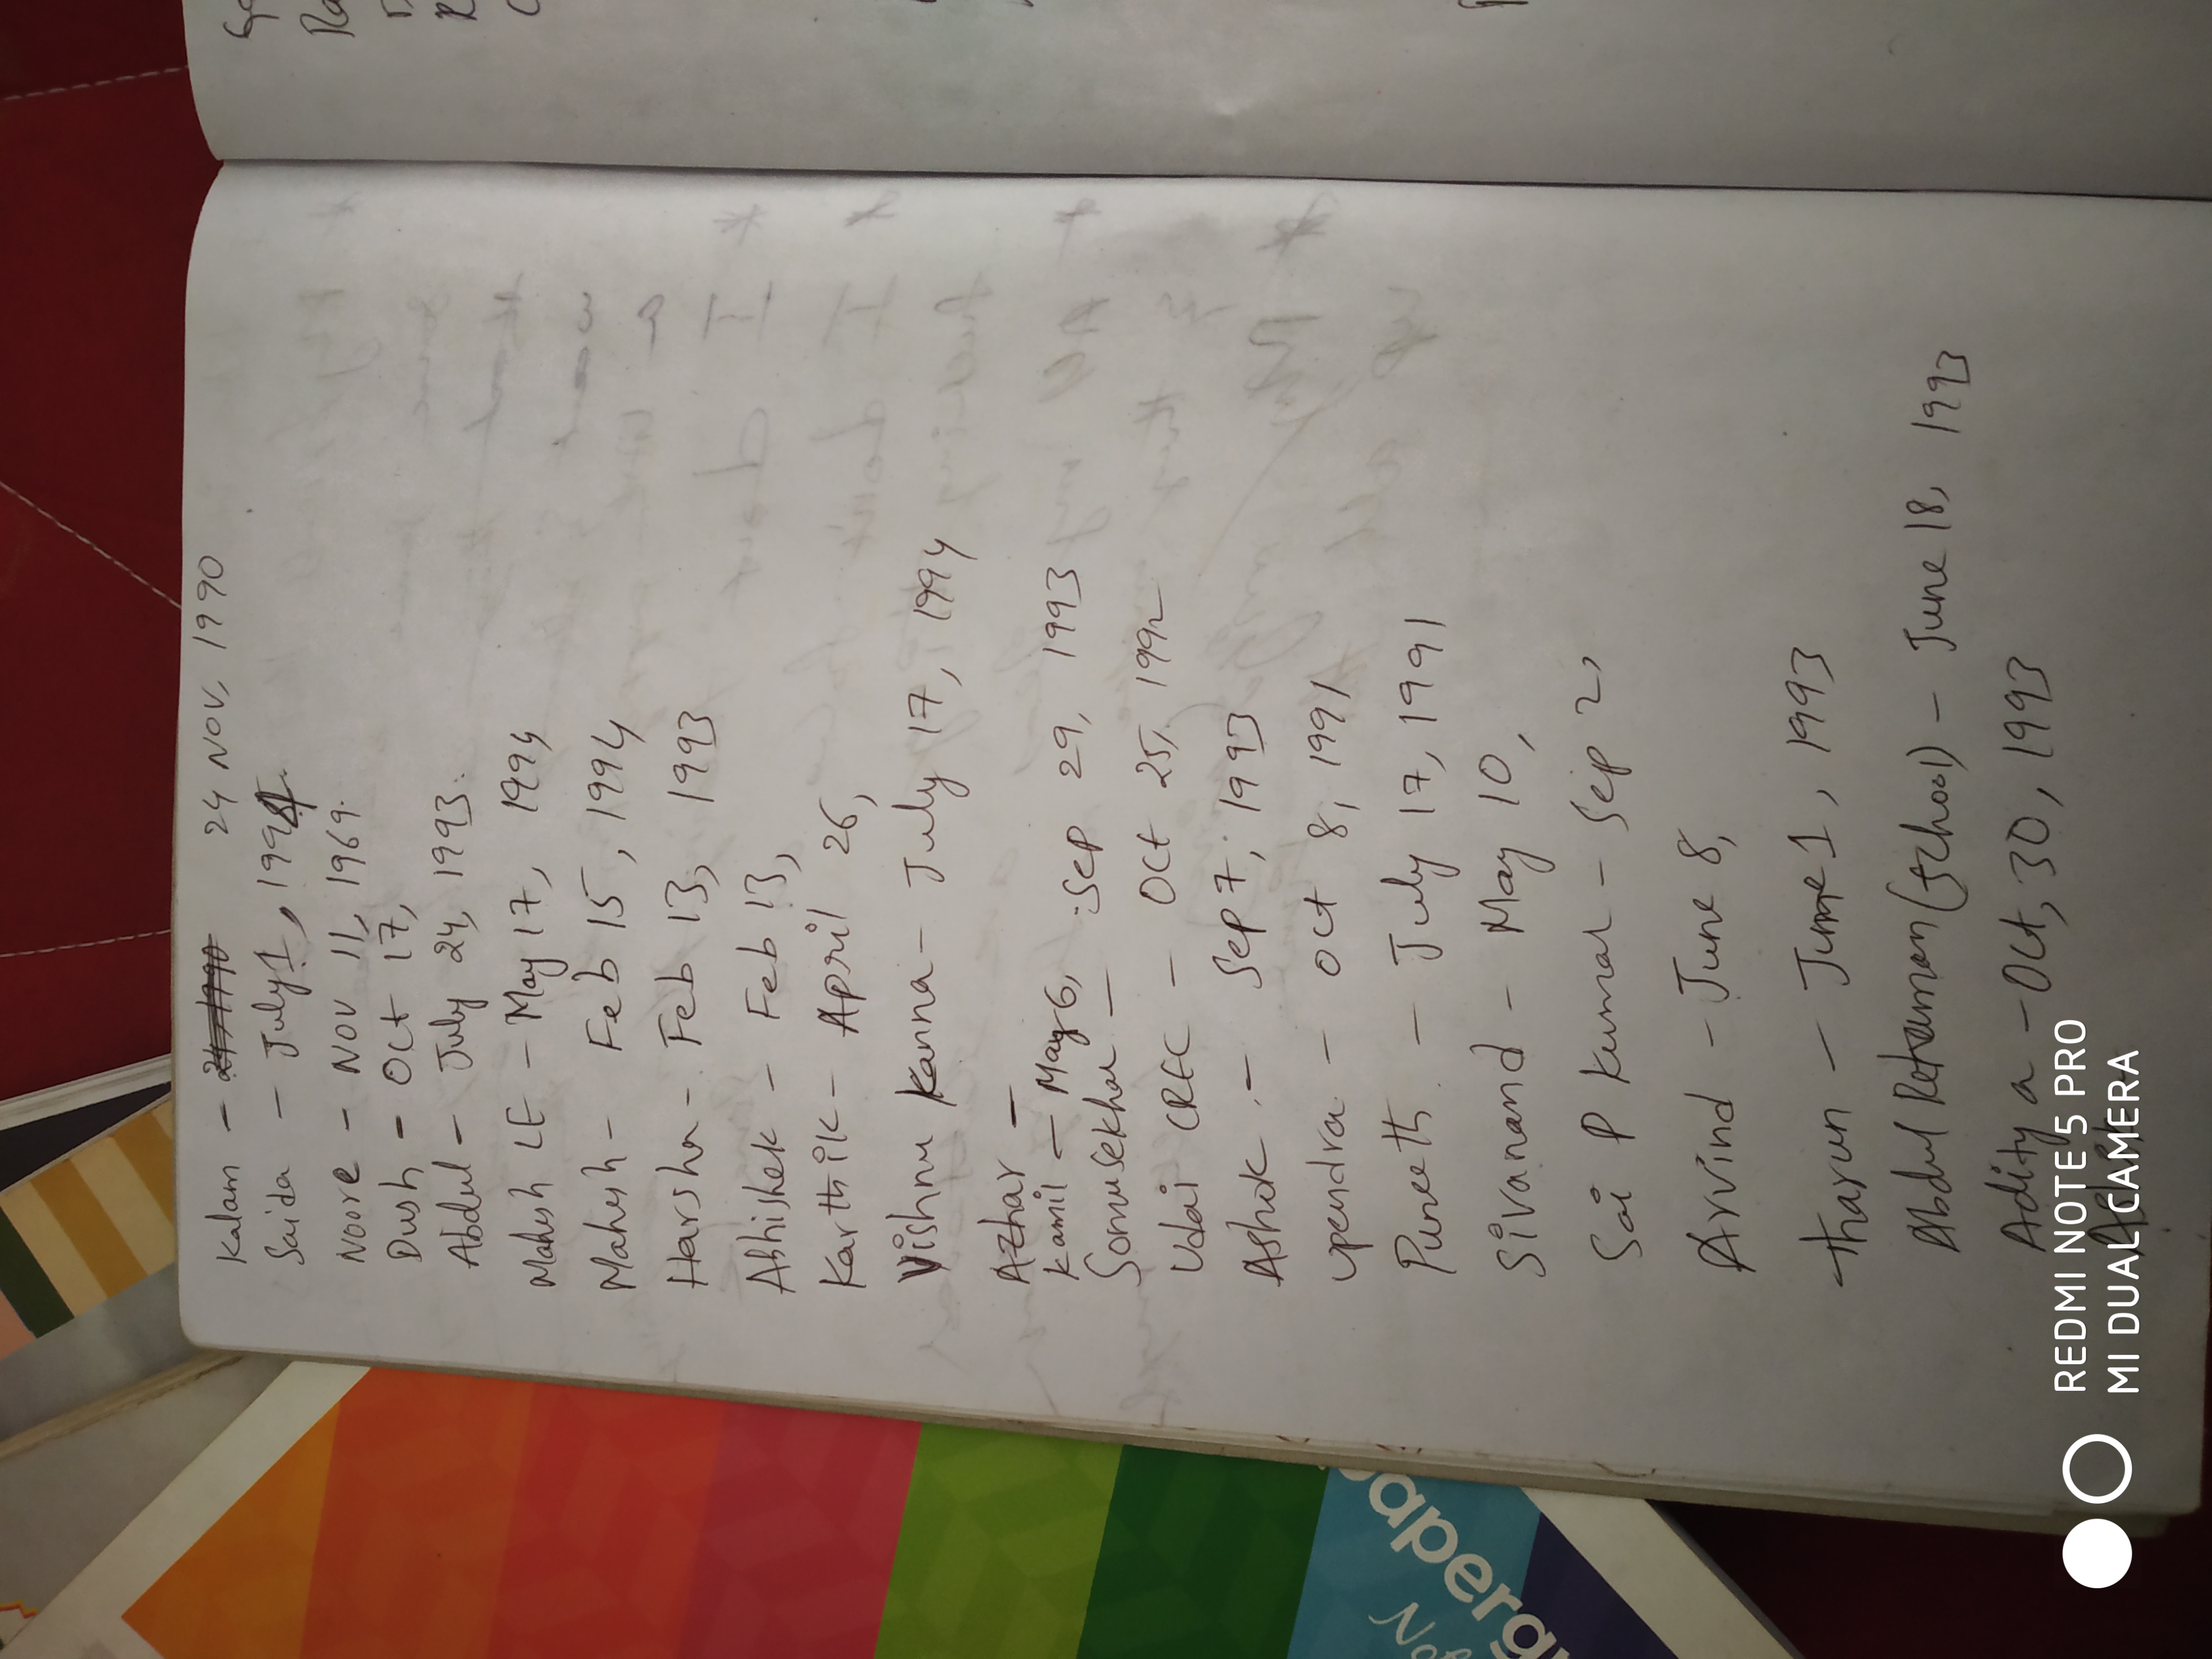 Kalam - 24, 1990 24 NOV, 1990
Saida - July 1, 1994
Noore - NOV 11, 1969.
Dush - Oct 17,
Abdul - July 24, 1993.
Mahesh LE - May 17, 1994
Mahesh - Feb 15, 1994
Harsha - Feb 13, 1993
Abhishek - Feb 13,
Karthik - April 26,
Vishnu Kanna - July 17, 1994
Azhar -
Kamil - May 6,
Somusekhar - Sep 29, 1993
Udai CREC - Oct 25, 1992
Ashok - Sep 7, 1993
Upendra - Oct 8, 1991
Puneeth - July 17, 1991
Sivanand - May 10,
Sai P Kumar - Sep 2,
Arvind - June 8,
Tharun - June 1, 1993
Abdul Rehaman (School) - June 18, 1993
Aditya - Oct, 30, 1993
REDMI NOTE 5 PRO
MI DUAL CAMERA